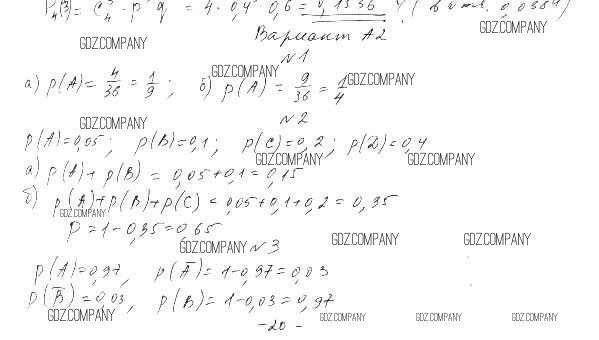 P₄(3) = C₄³ · p³ q = 4 · 0,4³ · 0,6 = 0,1536
GDZ.COMPANY
GDZ.COMPANY
Вариант А2
№1
GDZ.COMPANY
GDZ.COMPANY
а) p(A) = 4/36 = 1/9 ; б) p(A) = 9/36 = 1/4
GDZ.COMPANY
№2
p(A)=0,05; p(B)=0,1; p(C)=0,2; p(D)=0,4
GDZ.COMPANY
GDZ.COMPANY
а) p(A)+p(B) = 0,05+0,1=0,15
б) p(A)+p(B)+p(C) = 0,05+0,1+0,2=0,35
GDZ.COMPANY
P=1-0,35=0,65
GDZ.COMPANY
GDZ.COMPANY
GDZ.COMPANY
№3
p(A)=0,97, p(A̅)=1-0,97=0,03
p(B̅)=0,03, p(B)=1-0,03=0,97
GDZ.COMPANY
GDZ.COMPANY
GDZ.COMPANY
GDZ.COMPANY
-20-